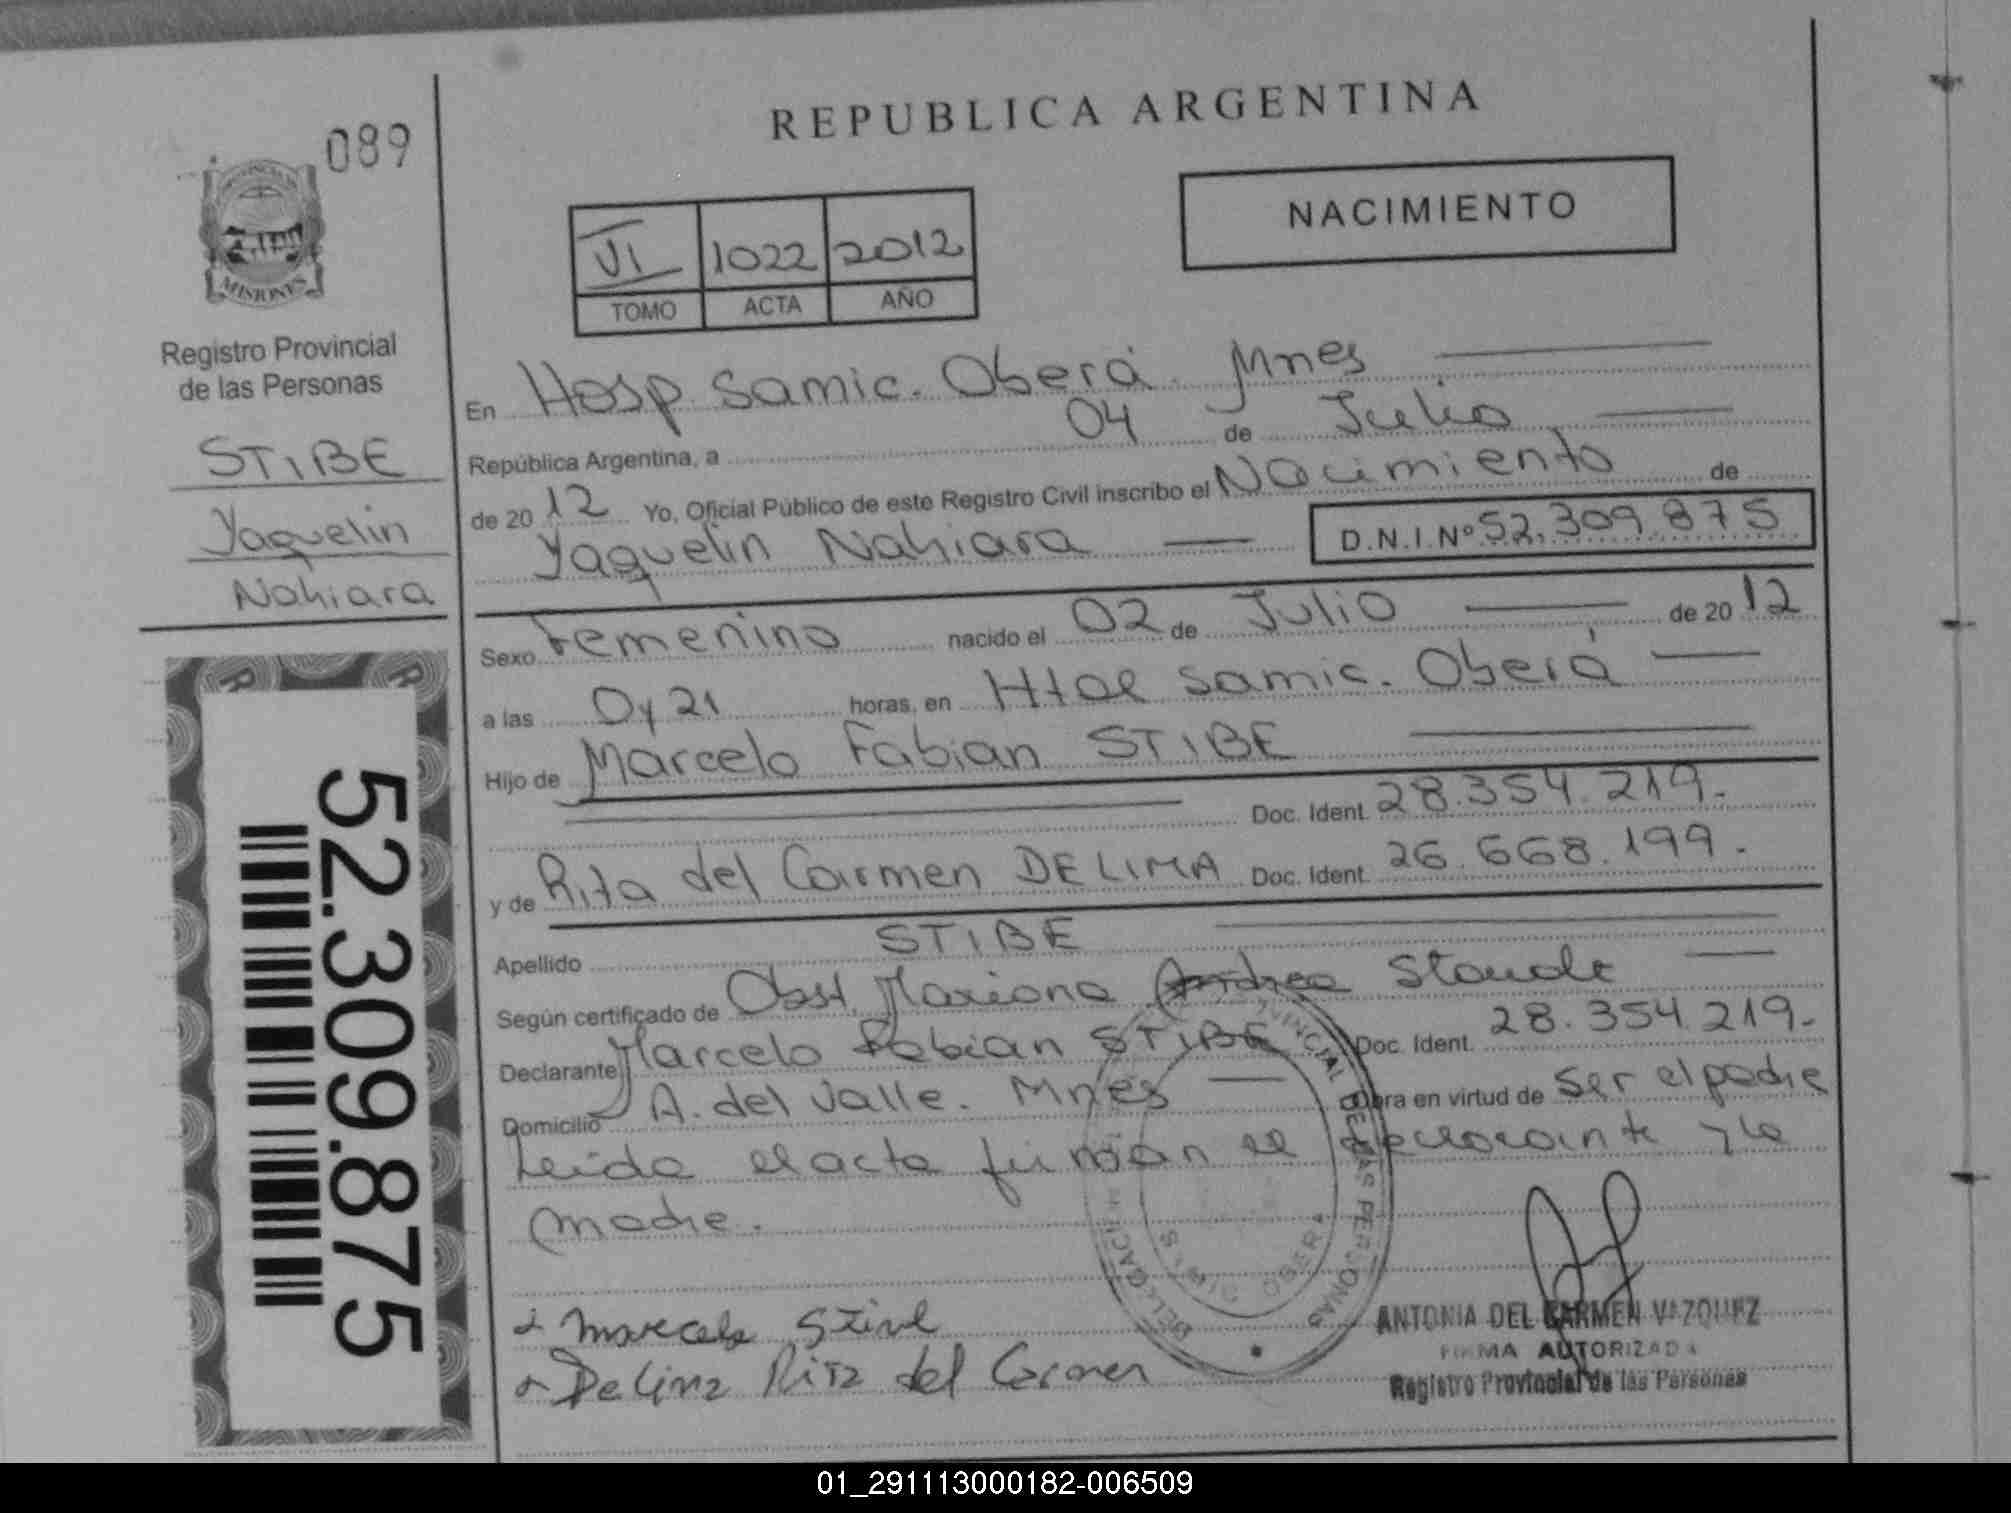 089
PROVINCIA DE
MISIONES
Registro Provincial
de las Personas
STIBE
Yaquelin
Nahiara
R R
52.309.875
REPUBLICA ARGENTINA
NACIMIENTO
VI 1022 2012
TOMO ACTA AÑO
En Hosp. Samic. Oberá. Mnes
República Argentina, a 04 de Julio
de 2012 Yo, Oficial Público de este Registro Civil inscribo el Nacimiento de
Yaquelin Nahiara D.N.I.Nº 52.309.875
Sexo Femenino nacido el 02 de Julio de 2012
a las 0y 21 horas, en Htal Samic. Oberá
Hijo de Marcelo Fabian STIBE
Doc. Ident. 28.354.219.
y de Rita del Carmen DE LIMA Doc. Ident. 26.668.199.
Apellido STIBE
Según certificado de Obst. Mariana Andrea Staude
Declarante Marcelo Fabian STIBE Doc. Ident. 28.354.219.
Domicilio A. del Valle. Mnes Obra en virtud de ser el padre
Leida el acta firman el declarante y la
madre.
Marcelo Stive
De Lima Rita del Carmen
ANTONIA DEL CARMEN VAZQUEZ
FIRMA AUTORIZADA
Registro Provincial de las Personas
01_291113000182-006509